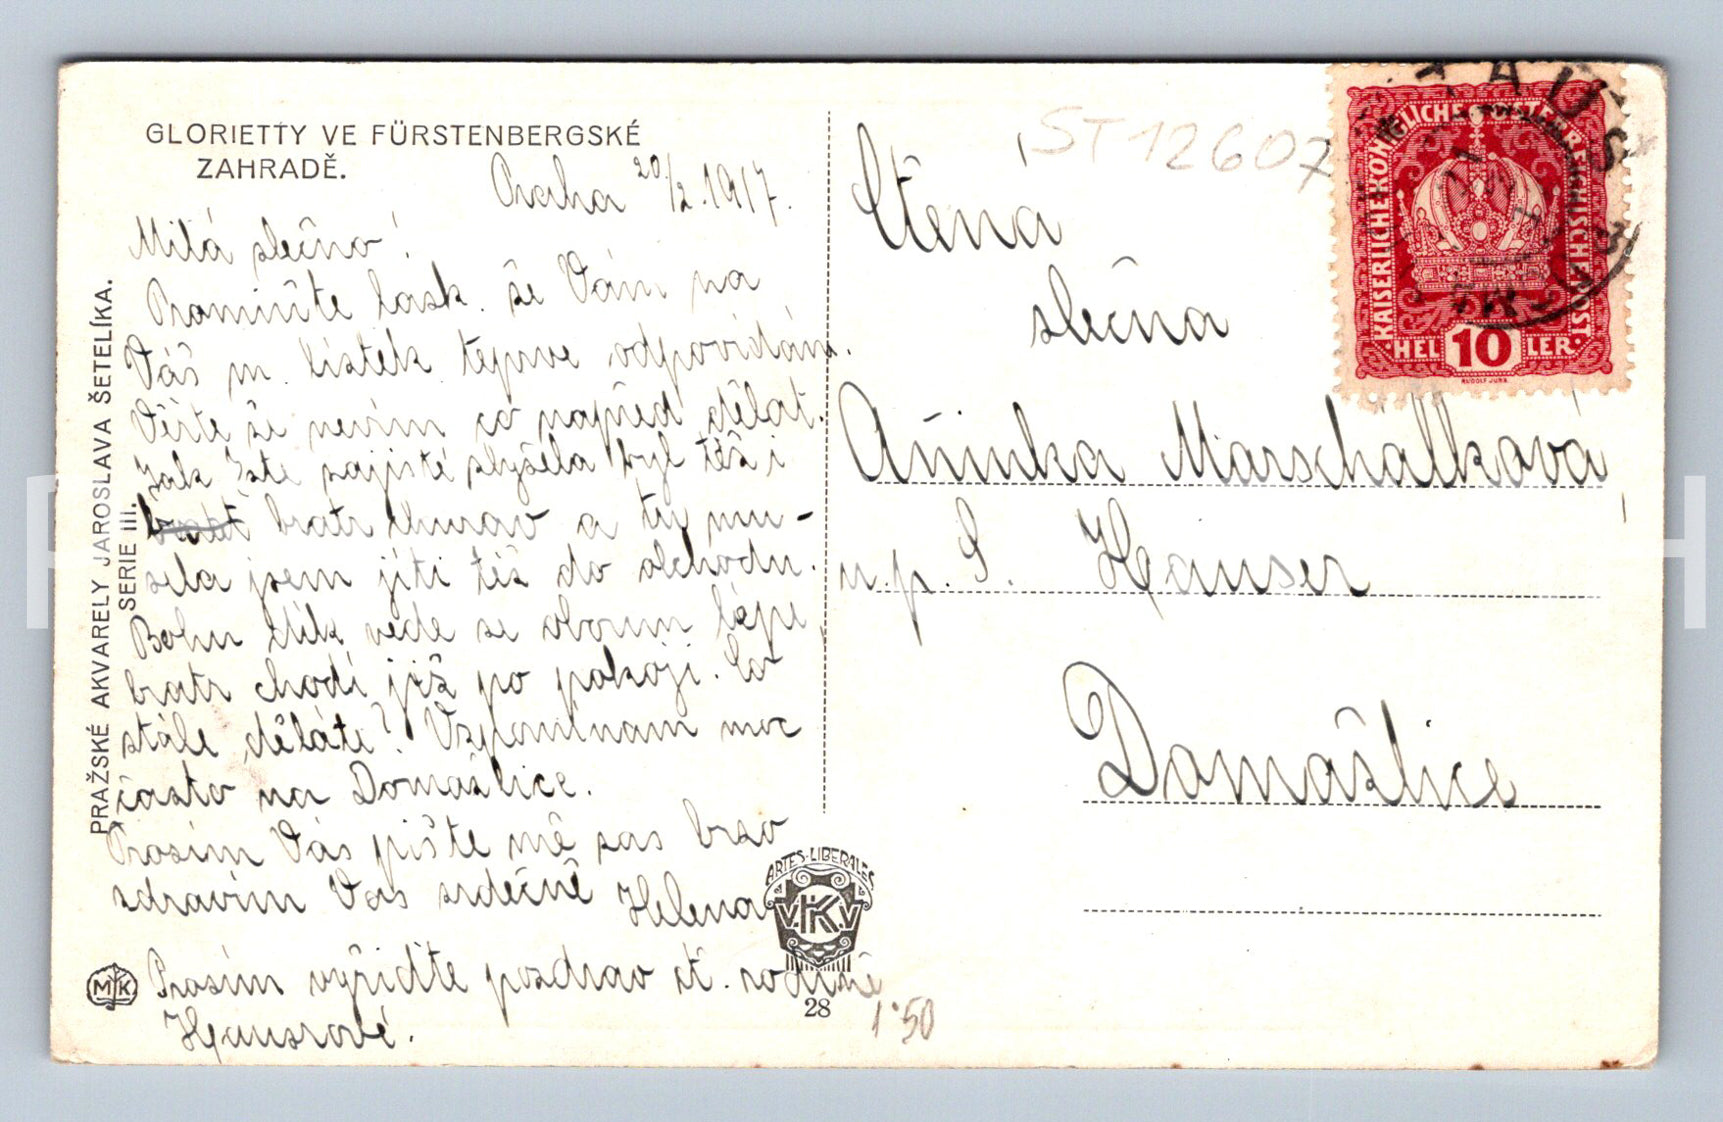 GLORIETTY VE FÜRSTENBERGSKÉ
ZAHRADĚ.
Praha 20/2. 1917.
Milá slečno!
Promiňte lask. že Vám na
Váš m. lístek teprve odpovídám.
Věřte že nevím co napřed dělat.
Jak jste zajisté slyšela byl též i
bratr churav a tu mu-
sela jsem jíti též do obchodu.
Bohu dík vede se oboum lépe
bratr chodí již po pokoji. Co
stále děláte? Vzpomínam moc
často na Domažlice.
Prosím Vás pište mě zas brzo
zdravím Vás srdečně Helena
Prosím vyřiďte pozdrav ct. rodině
Hausrové.
PRAŽSKÉ AKVARELY JAROSLAVA ŠETELÍKA.
SERIE III.
MK
ARTES·LIBERALES
V.K.K.V.
28
1·50
ST12607
Ctěná
slečna
Aninka Marschalková
n. p. S. Hauser
Domažlice
KAISERLICHE KÖNIGLICHE ÖSTERREICHISCHE POST
HELLER 10
RUDOLF JUNK
TAUS